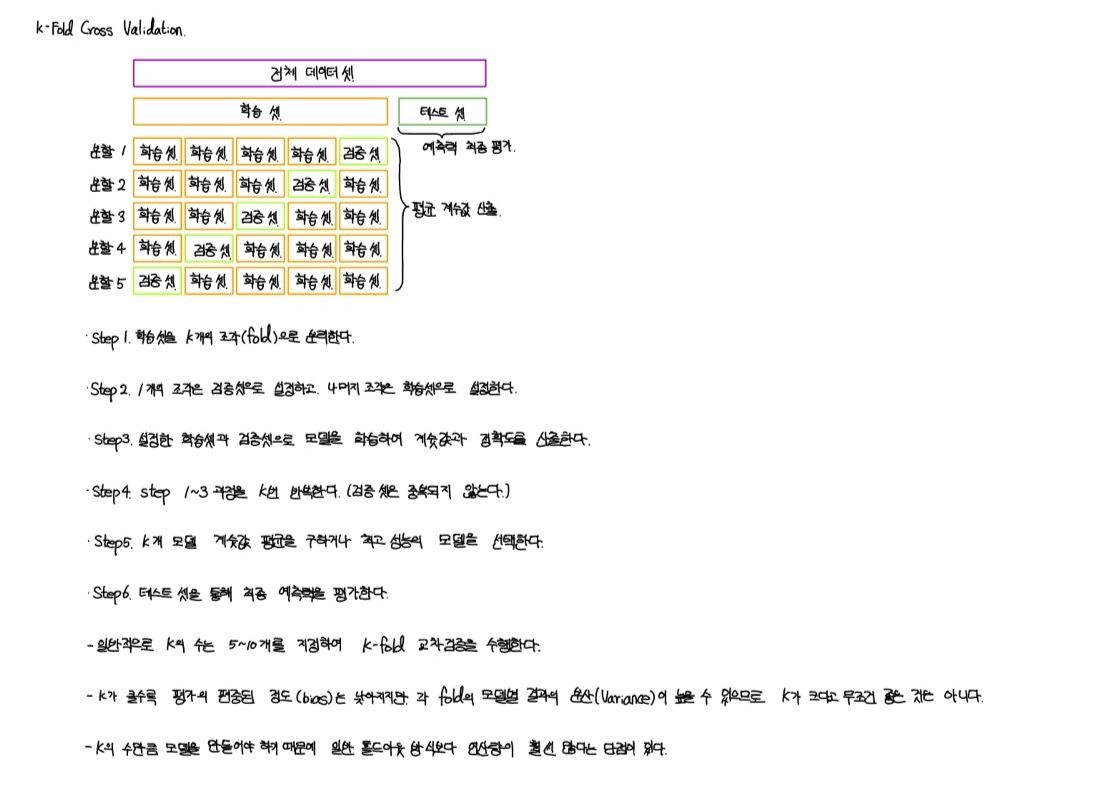 k-Fold Cross Validation.
전체 데이터 셋
학습 셋 테스트 셋
예측력 최종 평가.
분할 1 학습 셋 학습 셋 학습 셋 학습 셋 검증 셋
분할 2 학습 셋 학습 셋 학습 셋 검증 셋 학습 셋
분할 3 학습 셋 학습 셋 검증 셋 학습 셋 학습 셋
분할 4 학습 셋 검증 셋 학습 셋 학습 셋 학습 셋
분할 5 검증 셋 학습 셋 학습 셋 학습 셋 학습 셋
평균 계수값 산출.
· Step 1. 학습셋을 k개의 조각(fold)으로 분리한다.
· Step 2. 1개의 조각은 검증셋으로 설정하고. 나머지 조각은 학습셋으로 설정한다.
· Step3. 설정한 학습셋과 검증셋으로 모델을 학습하여 계숫값과 정확도를 산출한다.
· Step4. step 1~3 과정을 k번 반복한다. (검증 셋은 중복되지 않는다.)
· Step5. k개 모델 계숫값 평균을 구하거나 최고 성능의 모델을 선택한다.
· Step6. 테스트 셋을 통해 최종 예측력을 평가한다.
- 일반적으로 k의 수는 5~10개를 지정하여 k-fold 교차검증을 수행한다.
- k가 클수록 평가의 편중된 정도(bias)는 낮아지지만. 각 fold의 모델별 결과의 분산(Variance)이 높을 수 있으므로 k가 크다고 무조건 좋은 것은 아니다.
- k의 수만큼 모델을 만들어야 하기 때문에 일반 홀드아웃 방식보다 연산량이 훨씬 많다는 단점이 있다.